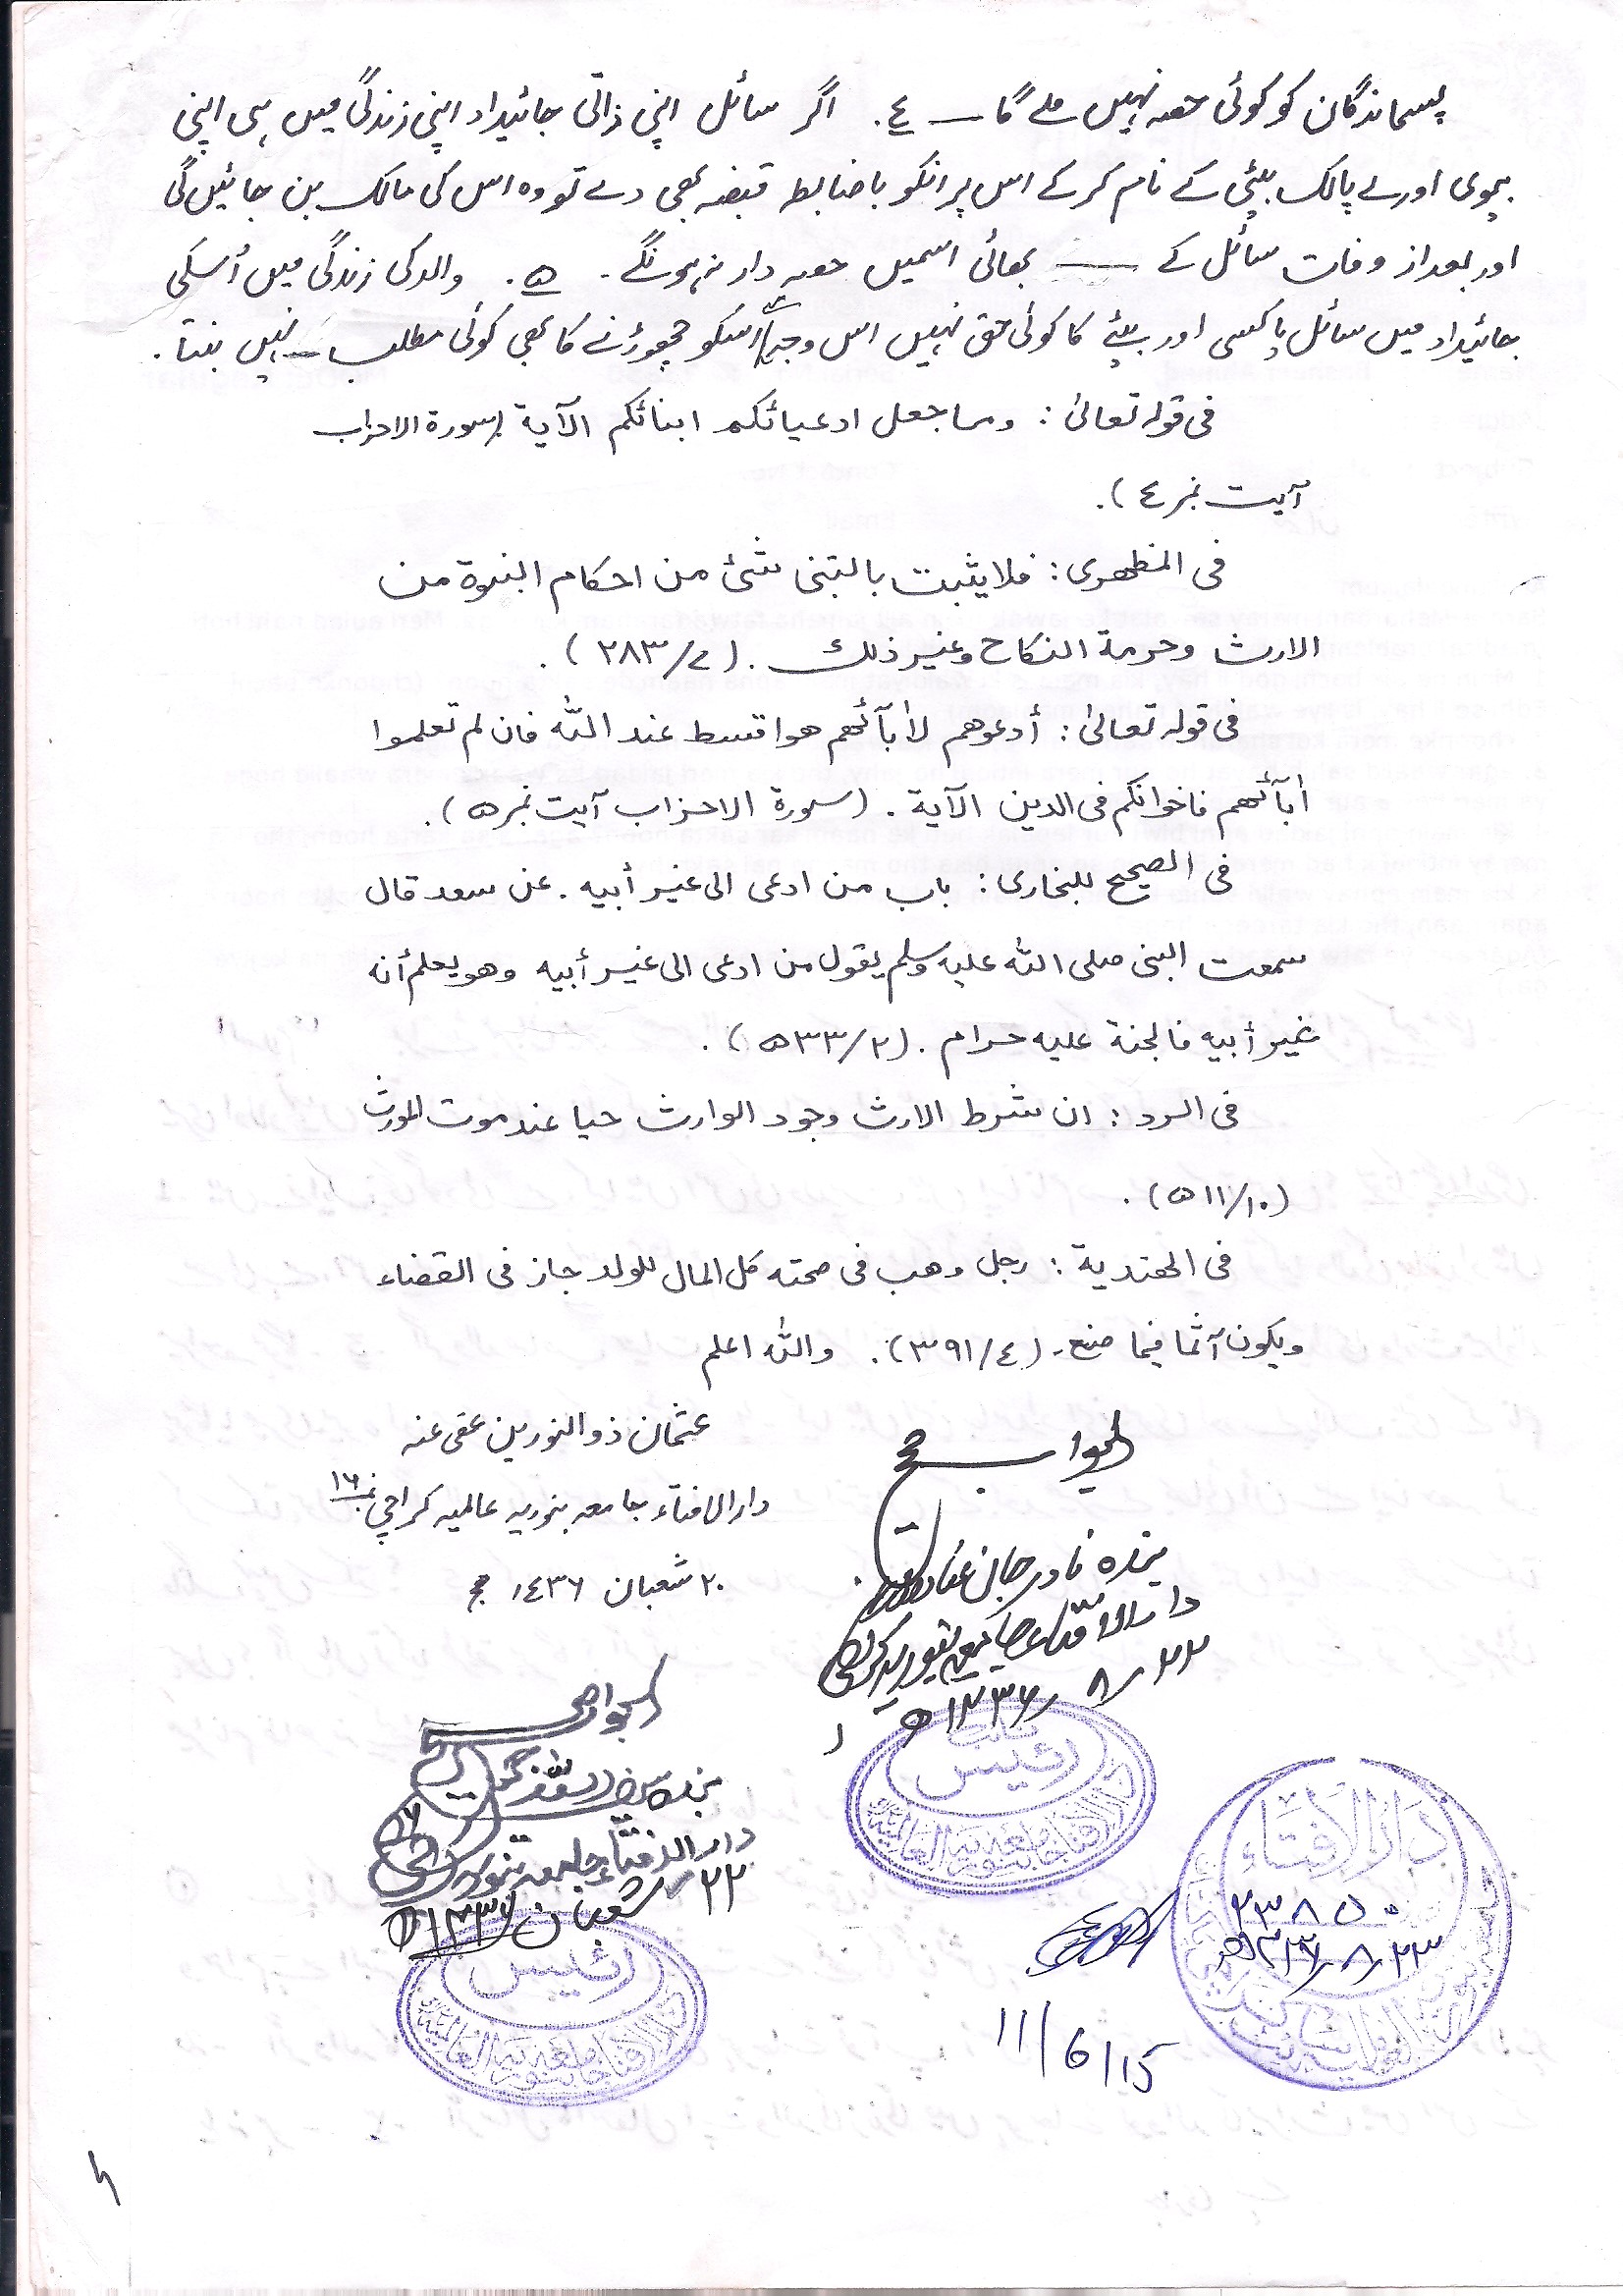 پسماندگان کو کوئی حصہ نہیں ملے گا ــ ٤. اگر سائل اپنی ذاتی جائیداد اپنی زندگی میں ہی اپنی
بیوی اور لے پالک بیٹی کے نام کر کے اس پر انکو باضابطہ قبضہ بھی دے تو وہ اس کی مالک بن جائیں گی
اور بعد از وفات سائل کے ــ بھائی اسمیں حصہ دار نہ ہونگے ۔ ۵. والد کی زندگی میں اُسکی
جائیداد میں سائل یا کسی اور بیٹے کا کوئی حق نہیں اس وجہ سے اسکو چھوڑنے کا بھی کوئی مطلب نہیں بنتا .
فی قولہ تعالیٰ : وما جعل ادعیائکم ابنائکم الآیة (سورة الاحزاب
آیت نمبر ٤) .
فی المظھری : فلا یثبت بالتبنی شئ من احکام البنوة من
الارث وحرمة النکاح وغیر ذلك . (۷/۲۸۳) .
فی قولہ تعالیٰ : أدعوھم لأبآئھم ھو اقسط عند اللّٰہ فان لم تعلموا
أبآئھم فاخوانکم فی الدین الآیة . (سورة الاحزاب آیت نمبر ۵) .
فی الصحیح للبخاری : باب من ادعی الی غیر أبیہ . عن سعد قال
سمعت النبی صلی اللّٰہ علیہ وسلم یقول من ادعی الی غیر أبیہ وھو یعلم أنہ
غیر أبیہ فالجنة علیہ حرام . (۲/۵۳۳) .
فی الرد : ان شرط الارث وجود الوارث حیا عند موت المورث
(۱۰/۵۱۱) .
فی الھندیة : رجل وھب فی صحتہ کل المال للولد جاز فی القضاء
ویکون آثما فیما صنع ۔ (٤/۳۹۱) . واللّٰہ اعلم
عثمان ذوالنورین عفی عنہ
دارالافتاء جامعہ بنوریہ عالمیہ کراچی نمبر ۱۶
۲۰ شعبان ۱٤۳۶ ھ
الجواب صحیح
بندہ نادر جان عفا اللہ عنہ
دارالافتاء جامعہ بنوریہ کراچی
۲۲ / ۸ / ۱۴۳۶ ھ
نائب
رئیس
دارالافتاء جامعہ بنوریہ العالمیہ
الجواب صحیح
دارالافتاء جامعہ بنوریہ
۲۲ شعبان ۱۴۳۶ ھ
رئیس
دارالافتاء جامعہ بنوریہ العالمیہ
دَارُالاِفتَاء
۲۳۸۵۰
۲۳ / ۸ / ۱۴۳۶ ھ
11/6/15